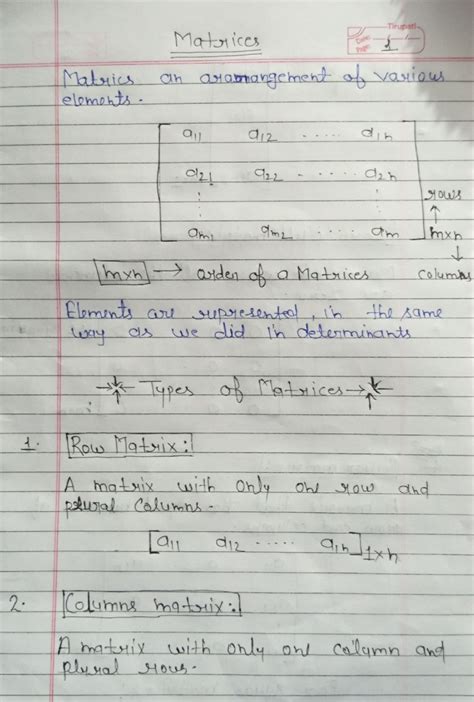 Matrices
Tirupati
Date
Page 1
Matrics an arrangement of various
elements.
a11 a12 ..... a1n
a21 a22 ..... a2n
rows
am1 am2 ..... am m×n
m×n → orden of a Matrices columns
Elements are represented, in the same
way as we did in determinants
Types of Matrices
1. Row Matrix:
A matrix with only one row and
plural Columns.
[a11 a12 ..... a1n]1×n
2. Columns matrix:
A matrix with only one column and
plural rows.